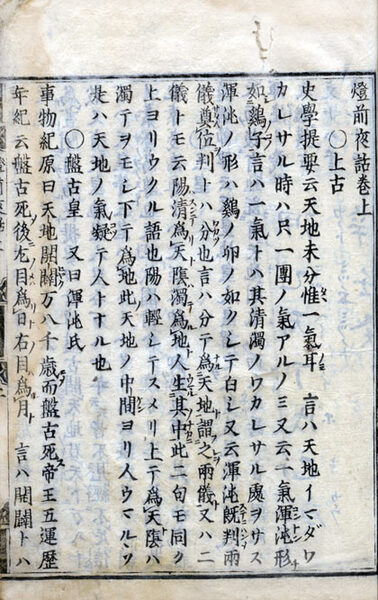 燈前夜話卷上
○上古
史學提要云天地未分惟一氣耳 言ハ天地イマダワ
カレサル時ハ只一團ノ氣アルノミ又云一氣渾沌形
如鷄子言ハ一氣トハ其清濁ノワカレサル處ヲサス
渾沌ノ形ハ鷄ノ卵ノ如クシテ白シ又云渾沌既判兩
儀奠位判トハ分也言ハ分テ爲天地謂之兩儀又ハ二
儀トモ云陽清爲天陰濁爲地人生其中此二句モ同ク
上ヨリウクル語也陽ハ輕シテスメリ上テ爲天陰ハ
濁テヲモシ下テ爲地此天地ノ中間ヨリ人ウマルヽソ
是ハ天地ノ氣凝テ人トナル也
○盤古皇 又曰渾沌氏
事物紀原曰天地開闢万八千歳而盤古死帝王五運歴
年紀云盤古死後左目爲日右目爲月 言ハ開闢トハ